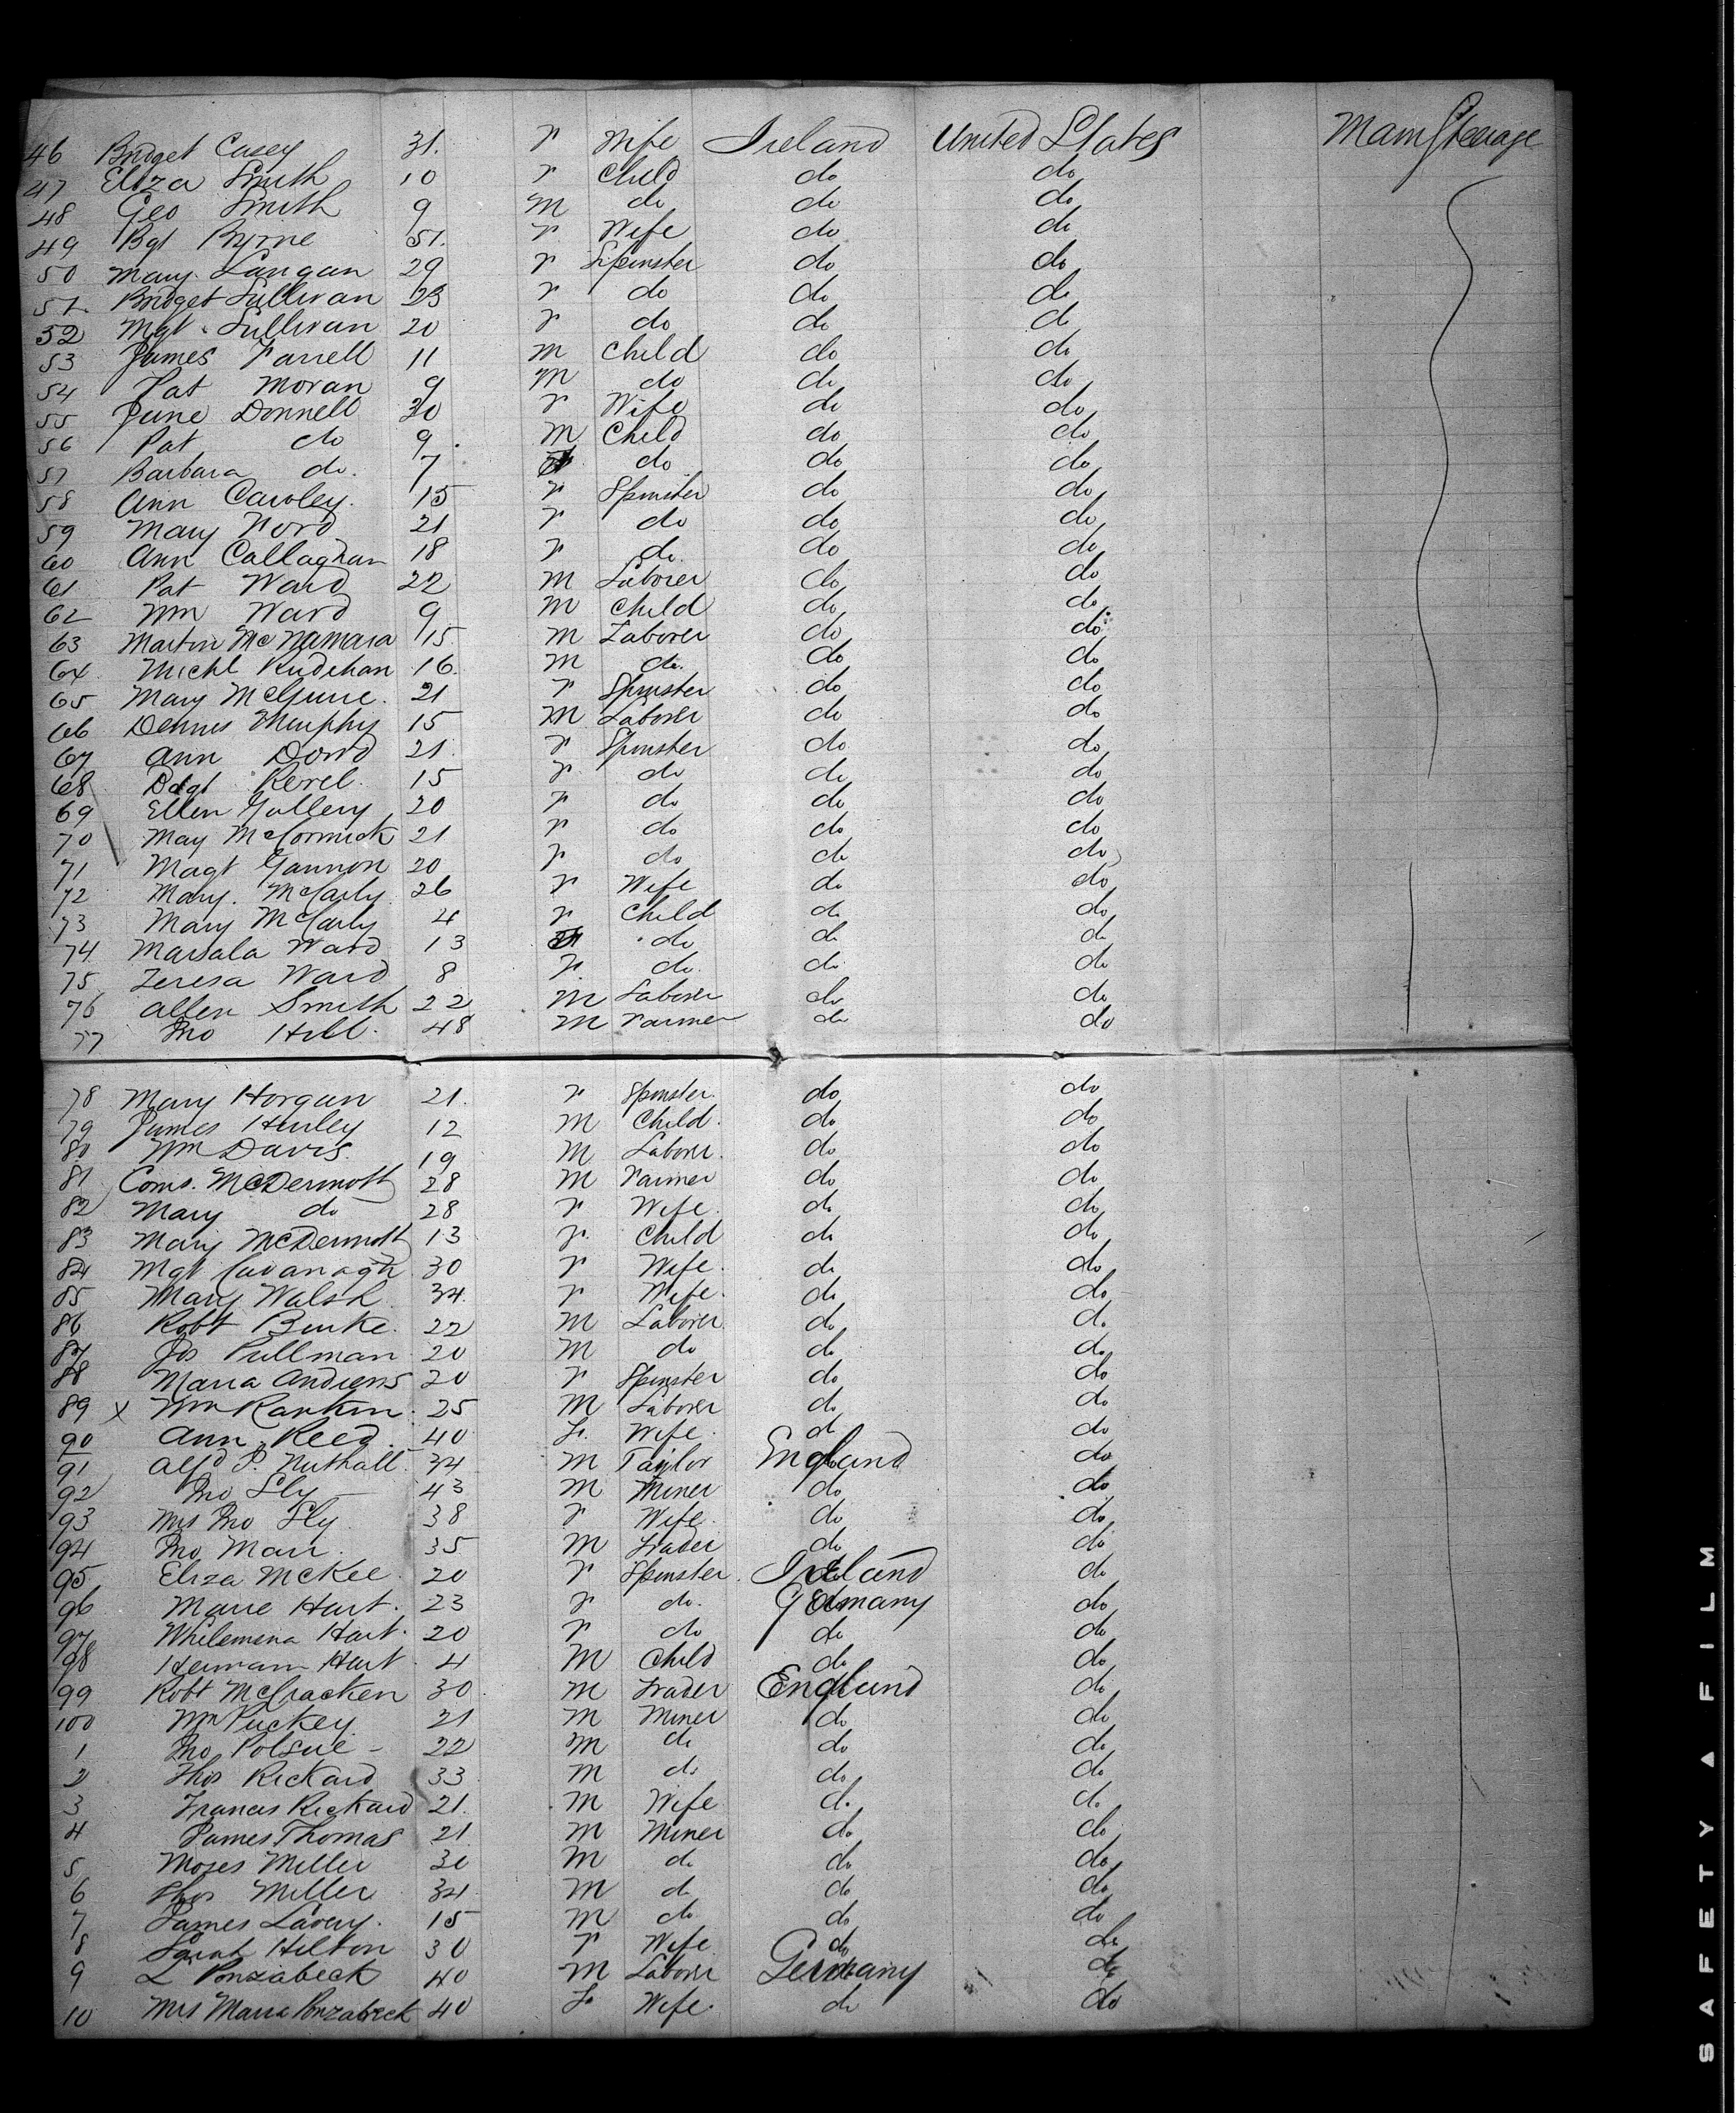 46 Bridget Casey 31. F Wife Ireland United States Main Steerage
47 Eliza Smith 10 F Child do do
48 Geo Smith 9 M do do do
49 Bgt Byrne 51. F Wife do do
50 Mary Langan 29 F Spinster do do
51. Bridget Sullivan 23 F do do do
52 Mgt. Sullivan 20 F do do do
53 James Farrell 11 M Child do do
54 Pat Moran 9 M do do do
55 Jane Donnell 30 F Wife do do
56 Pat do 9. M Child do do
57 Barbara do. 7 do do do
58 Ann Cawley. 15 F Spinster do do
59 Mary Ford 21 F do do do
60 Ann Callaghan 18 F do. do do
61 Pat Ward 22 M Laborer do do
62 Wm Ward 9 M Child do do
63 Martin McNamara 15 M Laborer do do
64 Michl 16. M do. do do
65 Mary McGuire. 21 F Spinster do do
66 Dennis Murphy 15 M Laborer do do
67 Ann Dowd 21. F Spinster do do
68 15 F. do do do
69 Ellen Gallery 20 F do do do
70 May McCormick 21 F do do do
71 Magt Gannon 20 F do do do
72 Mary. McCarty 26 F Wife do do
73 Mary McCarty 4 F Child do do
74 Ward 13 do do do
75. Teresa Ward 8 F. do. do do
76 Allen Smith 22 M Laborer do do
77 Jno Hill. 48 M Farmer do do
78 Mary Horgan 21. F Spinster. do do
79 James Hurley 12 M Child. do do
80 Wm Davis. 19 M Laborer. do do
81 McDermott 28 M Farmer do do
82 Mary do 28 F Wife. do do
83 Mary McDermott 13 F. Child do do
84 Mgt Cavanagh 30 F Wife. do do
85 Mary Walsh 34. F Wife. do do
86 Robt Burke. 22 M Laborer do do
87 Jos Pullman 20 M do do do
88 Maria Andrews 20 F Spinster do do
89 x Wm Rankin. 25 M Laborer do do
90 Ann Reed. 40 F. Wife. do do
91 Alfd P. Nuthall. 34 M Taylor England do
92 Jno Sly 43 M Miner do do
93 Mrs Jno Sly. 38 F Wife. do do
94 Jno Marr. 35 M Trader do do
95 Eliza McKee. 20 F Spinster. Ireland do
96 Marie Hart. 23 F do. Germany do
97 Whilemena Hart. 20 F do do do
98 Hermann Hart. 4 M Child do do
99 Robt McCracken 30. M Trader England do
100 Wm Puckey. 21 M Miner do do
1 Jno Polsue - 22 M do do do
2 Thos Rickard 33 M do do do
3 Francis Rickard 21. M Wife do. do
4 James Thomas 21 M Miner do do
5 Moses Miller 30 M do do do
6 Thos Miller 34. M do do do
7 James Lavery. 15 M do do do
8 Sarah Hilton 30 F Wife do do
9 L Ponzabeck 40 M Laborer Germany do
10 Mrs Maria Ponzabeck 40 F. Wife. do do
SAFETY ▲ FILM